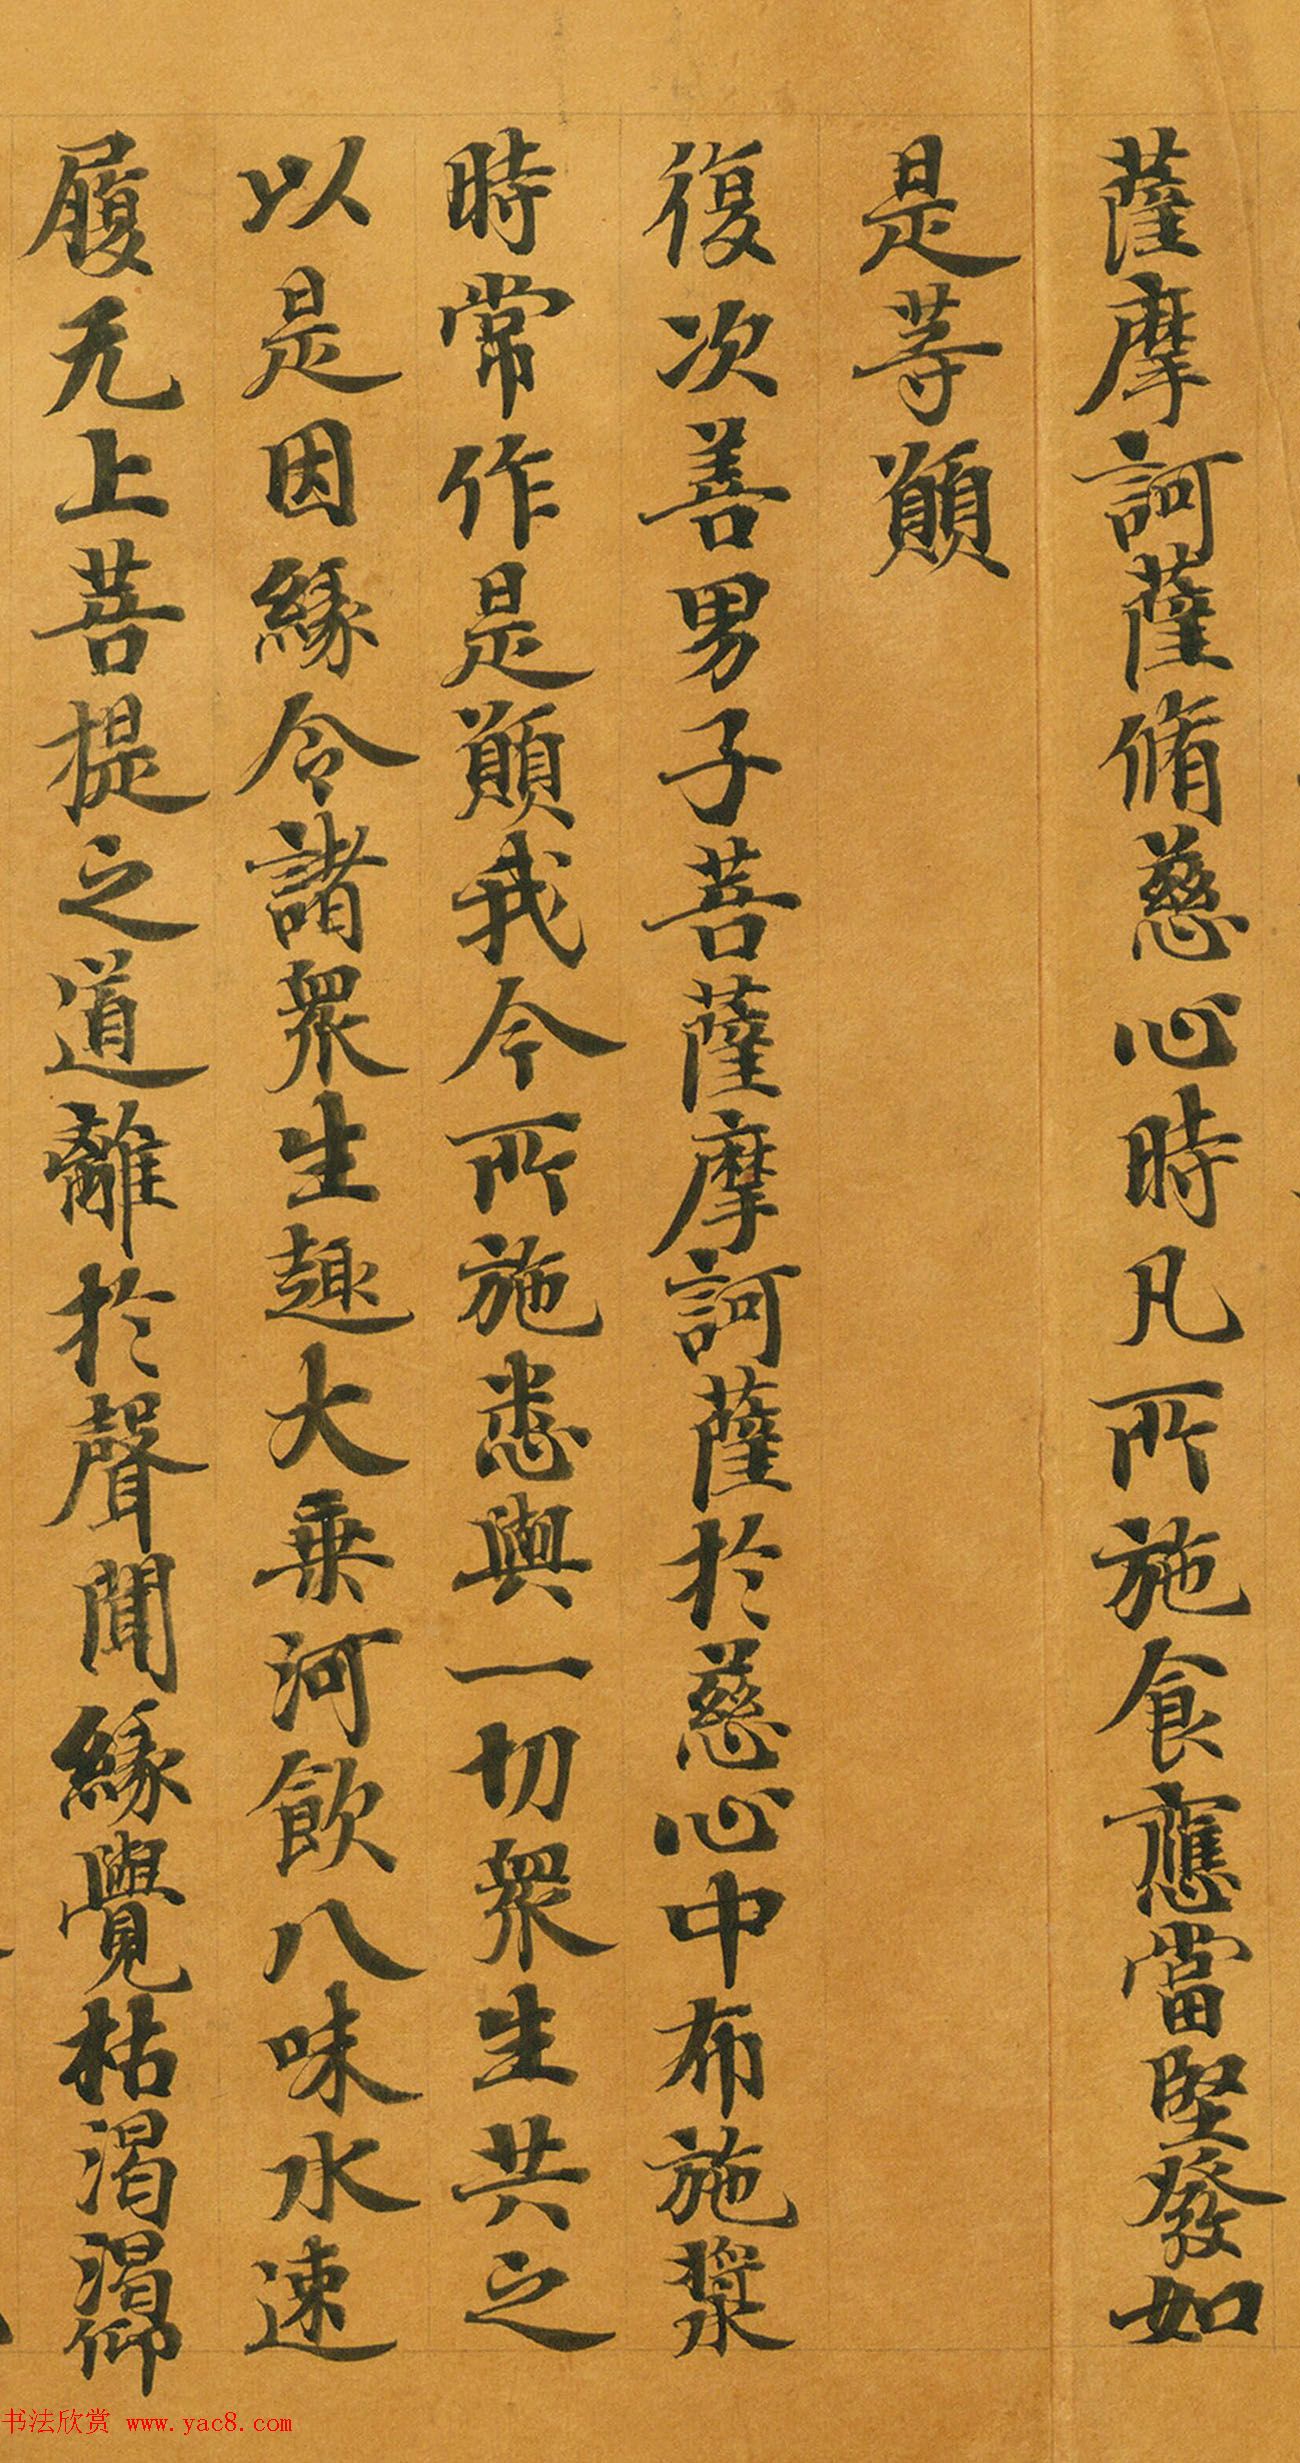 薩摩訶薩脩慈心時凡所施食應當堅發如
是等願
復次善男子菩薩摩訶薩於慈心中布施漿
時常作是願我今所施悉與一切眾生共之
以是因緣令諸眾生趣大乗河飲八味水速
履无上菩提之道離於聲聞緣覺枯渴渴仰
书法欣赏 www.yac8.com